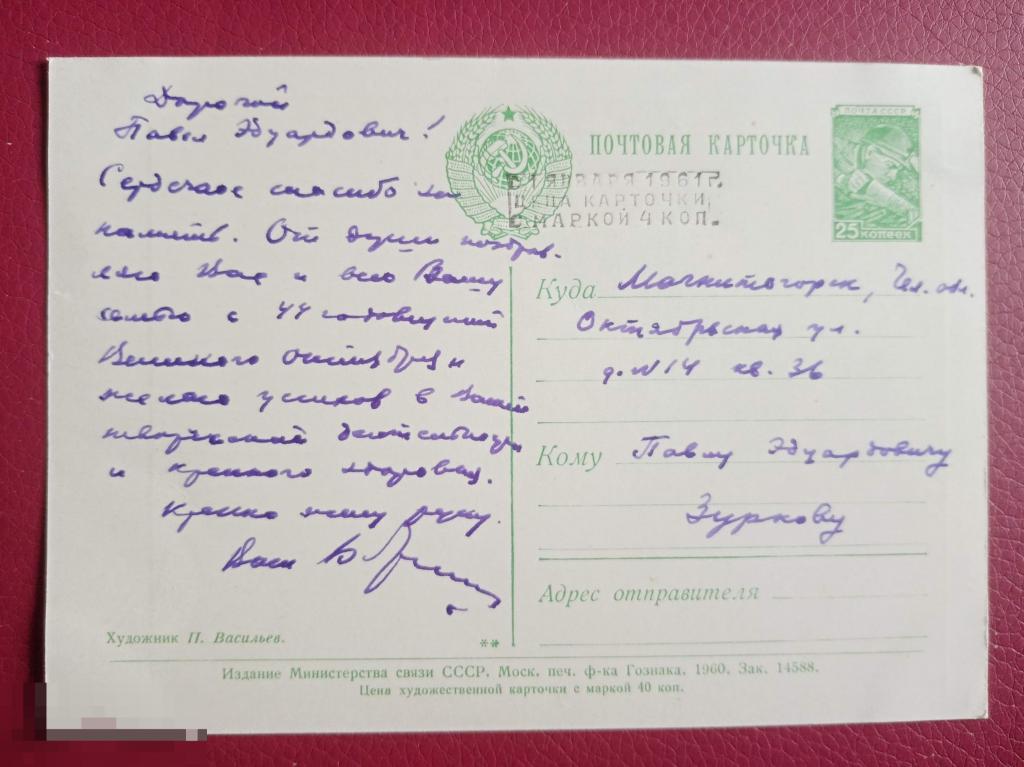 Дорогой
Павел Эдуардович!
Сердечное спасибо за
память. От души поздрав-
ляю Вас и всю Вашу
семью с 44 годовщиной
Великого октября и
желаю успехов в Вашей
творческой деятельности
и крепкого здоровья.
Крепко жму руку.
Ваш
Художник П. Васильев.
ПОЧТОВАЯ КАРТОЧКА
С 1 ЯНВАРЯ 1961 г.
ЦЕНА КАРТОЧКИ
С МАРКОЙ 4 КОП.
ПОЧТА СССР
25 КОПЕЕК
Куда Магнитогорск, Чел. обл.
Октябрьская ул.
д. N 14 кв. 36
Кому Павлу Эдуардовичу
Зуркову
Адрес отправителя
**
Издание Министерства связи СССР. Моск. печ. ф-ка Гознака. 1960. Зак. 14588.
Цена художественной карточки с маркой 40 коп.